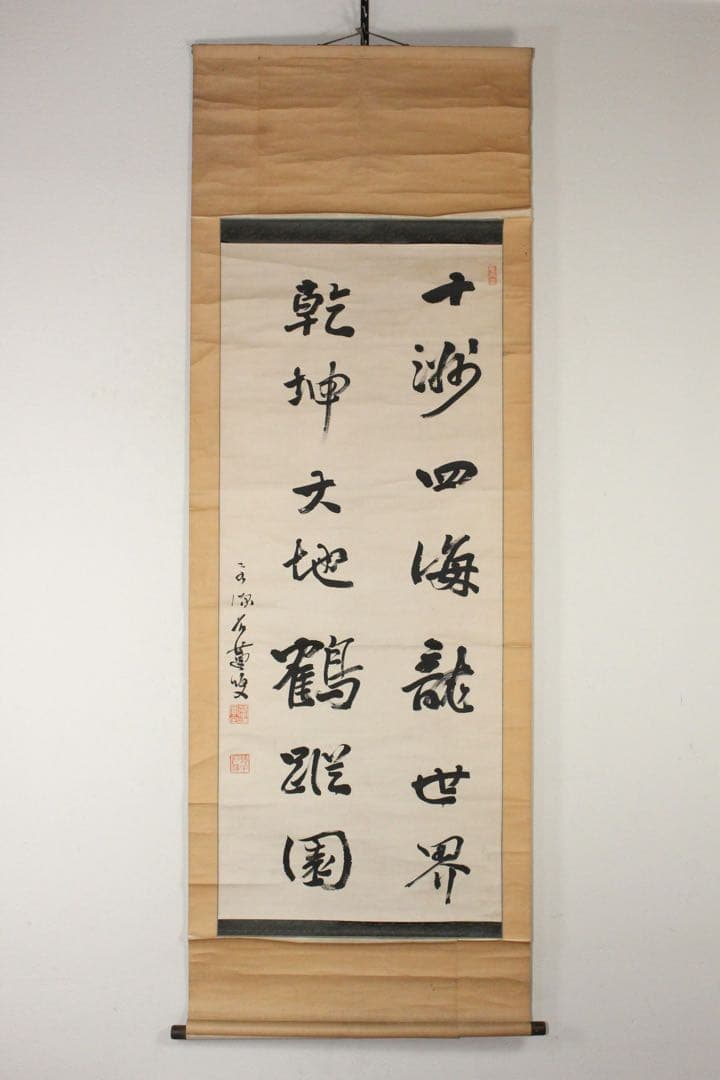 十洲四海龍世界
乾坤大地鶴蹤園